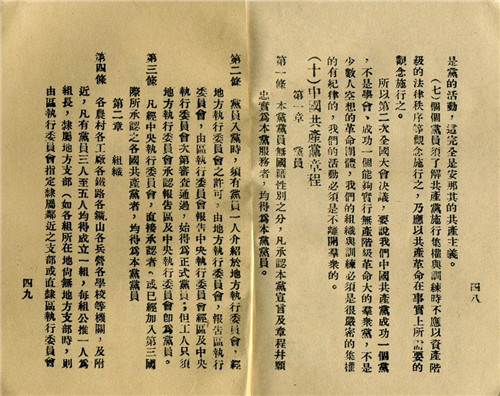 四八
是黨的活動，這完全是安那其的共產主義。
（七）個個黨員須了解共產黨施行集權與訓練時不應以資產階
級的法律秩序等觀念施行之，乃應以共產革命在事實上所需要的
觀念施行之。
所以第二次全國大會決議，要說我們中國共產黨成功一個黨
，不是學會、成功一個能夠實行無產階級革命大的羣衆黨，不是
少數人空想的革命團體，我們的組織與訓練必須是很嚴密的集權
的有紀律的，我們的活動必須是不離開羣衆的。
（十）中國共產黨章程
第一章　黨員
第一條　本黨黨員無國籍性別之分，凡承認本黨宣言及章程幷願
忠實爲本黨服務者，均得爲本黨黨員。
第二條　黨員入黨時，須有黨員一人介紹於地方執行委員會，經
地方執行委員會之許可，由地方執行委員會，報告區執行
委員會，由區執行委員會報告中央執行委員會經區及中央
執行委員會次第審査通過，始得爲正式黨員；但工人只須
地方執行委員會承認報告區及中央執行委員會卽爲黨員。
第三條　凡經中央執行委員會，直接承認者、或已經加入第三國
際所承認之各國共產黨者，均得爲本黨黨員
第二章　組織
第四條　各農村各工廠各鐵路各鑛山各兵營各學校等機關，及附
近，凡有黨員三人至五人均得成立一組，每組公推一人爲
組長，隸屬地方支部（如各組所在地尙無地方支部時，則
由區執行委員會指定隸屬鄰近之支部或直隸區執行委員會
四九